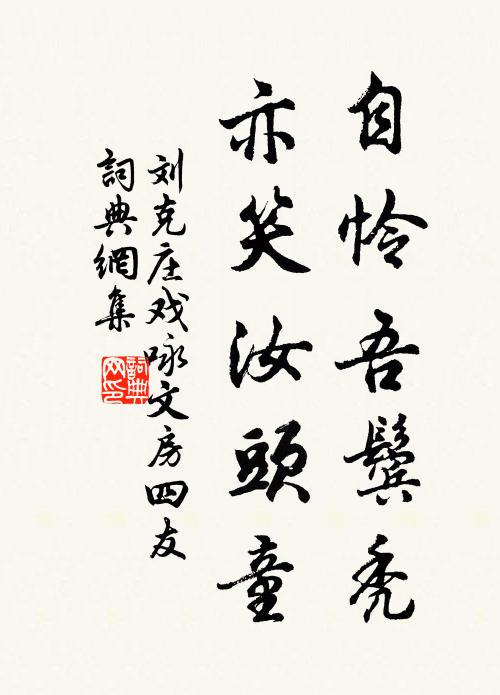 自怜吾鬓秃
亦笑汝頭童
刘克庄戏咏文房四友
詞典網集
詞典网印